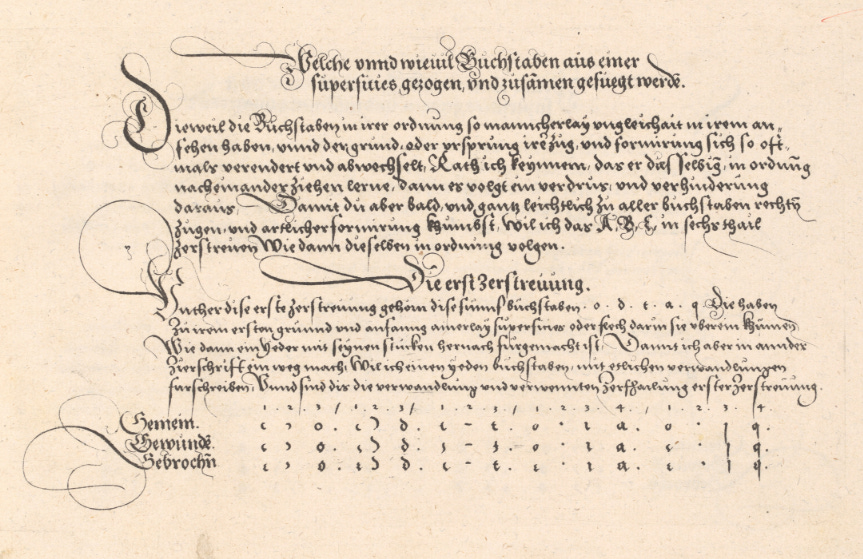 Welche vnnd wieuil Buchstaben aus einer
superficies gezogen, vnd zusamen gefuegt werdē.
Dieweil die Buchstaben in irer ordnung so manncherlay vngleichait in irem an„
sehen haben, vnnd den grund, oder vrsprung irē zug, vnd formirung sich so oft„
mals verendert vnd abwechselt, Rath ich keynnem, das er dasselbig, in ordnūg
nacheinander ziehen lerne, dann es volgt ein verdrus, vnd verhinderung
daraus. Damit du aber bald, vnd gantz leichtlich zu aller buchstaben rechtē
zugen, vnd artlicher formirung khumbst, wil ich das A, B, C, in sechs thail
zerstreuen Wie dann dieselben in ordnung volgen.
Die erst Zerstreuung.
In dise erste Zerstreuung gehörn dise fünf buchstaben . o . d . t . a . q . Die haben
Zu irem ersten grund vnd anfanng ainerlay superficies oder flech darin sie vberein khumen
Wie dann ein Yeder mit seynen stucken hernach furgemacht ist. Damit ich aber in annder
Zierschrifft ein weg mach, Wil ich einen yeden buchstaben, mit etlichen verwandlungen
furschreiben, Vnnd sind dis die verwandlung vnd verwennten Zerthailung erster Zerstreuung.
1 . 2 . 3 / 1 . 2 . 3 / 1 . 2 . 3 / 1 . 2 . 3 . 4 . 1 . 2 . 3 . 4 .
Gemein. ı ɔ o . ı Ɔ d . ı - t . o . ı a . o . ı q .
Gewundē. ı ɔ o . ı Ɔ d . ı - t . ı . ı a . ı . ı q .
Gebrochn̄ ı ɔ o . ı Ɔ d . ı - t . ı . ı a . ı . ı q .